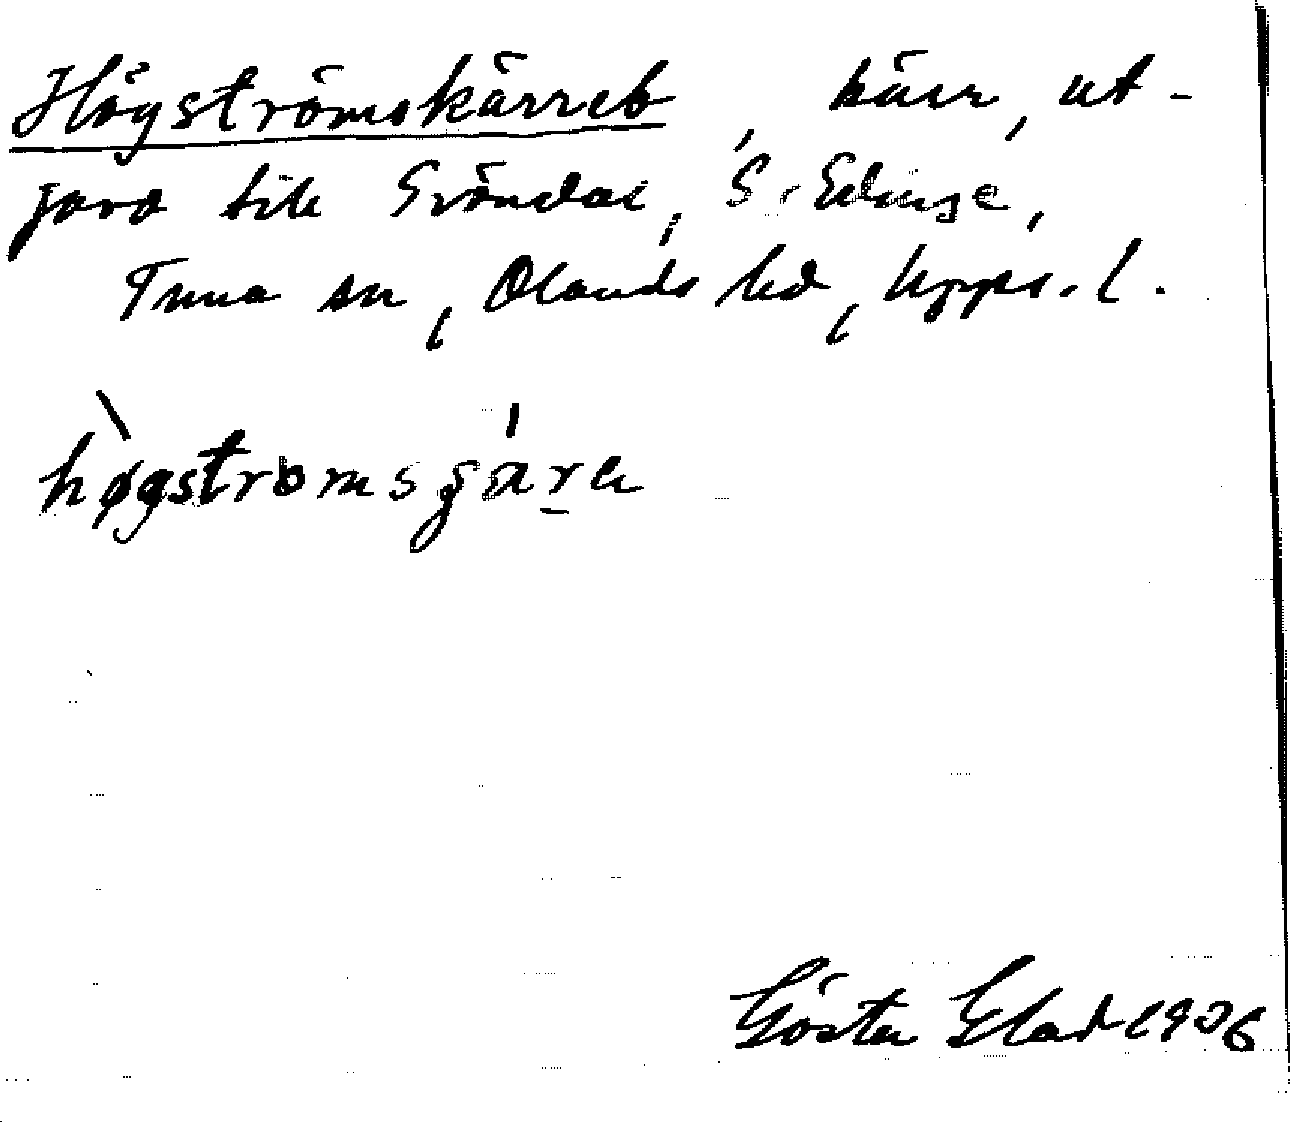 Högströmskärret, kärr, ut-
jord till Gröndal, S. Edinge,
Tuna sn, Olands hd, Upps. l.
høgstromsgära
Gösta Elad 1936